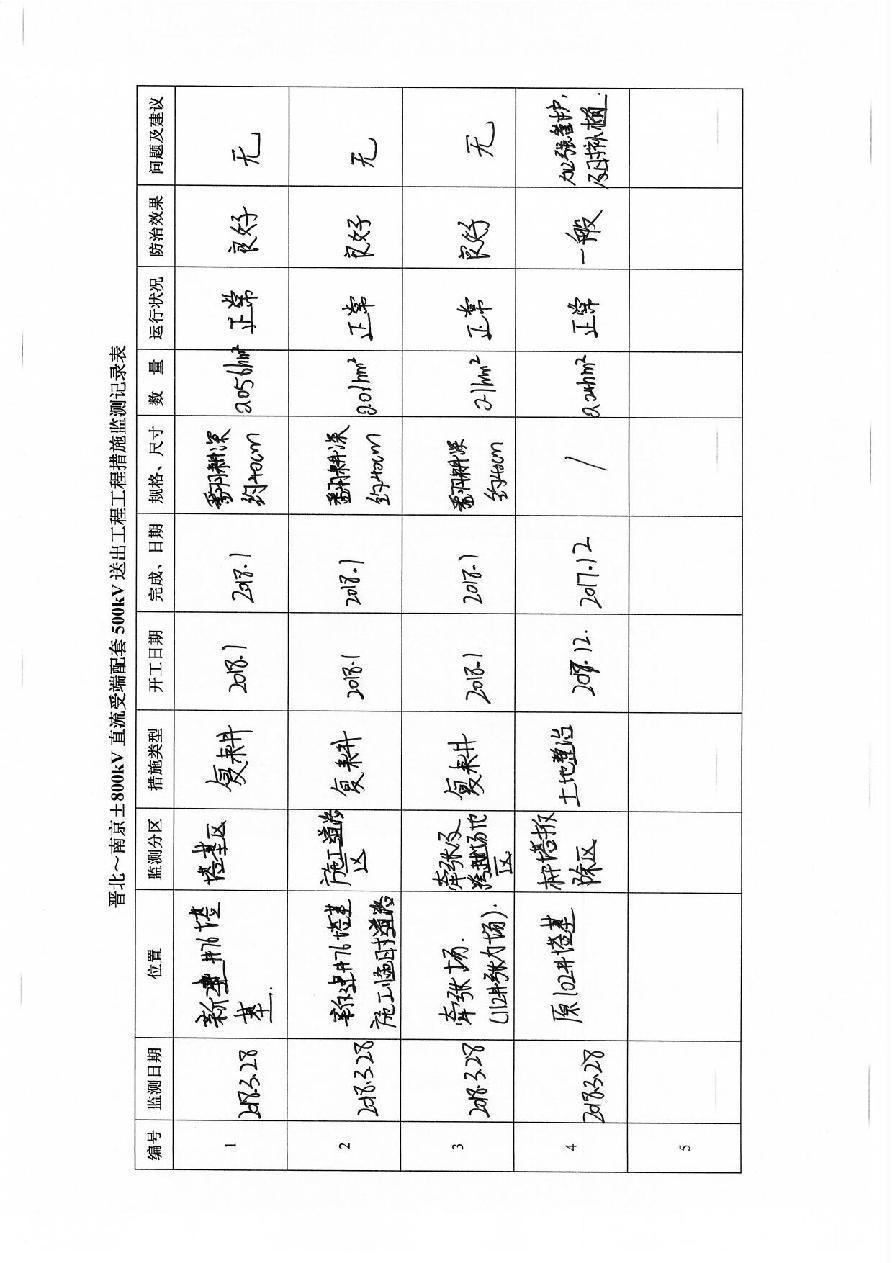 晋北～南京±800kV直流受端配套500kV送出工程工程措施监测记录表
编号 监测日期 位置 监测分区 措施类型 开工日期 完成、日期 规格、尺寸 数 量 运行状况 防治效果 问题及建议
1 2018.3.28 新建#76塔 塔基区 复耕 2018.1 2018.1 翻耕深 正常 良好 无
基. 约40cm
2 2018.3.28 新建#76塔基 施工道路 复耕 2018.1 2018.1 翻耕深 正常 良好 无
施工临时道路 区 约40cm
3 2018.3.28 牵张场. 牵张及 复耕 2018.1 2018.1 翻耕深 正常 良好 无
(112#张力场). 跨越场地 约40cm
区
4 2018.3.28 原102#塔基 杆塔拆 土地整治 2017.12. 2017.12 / 正常 一般 加强管护,
除区 及时补植.
5